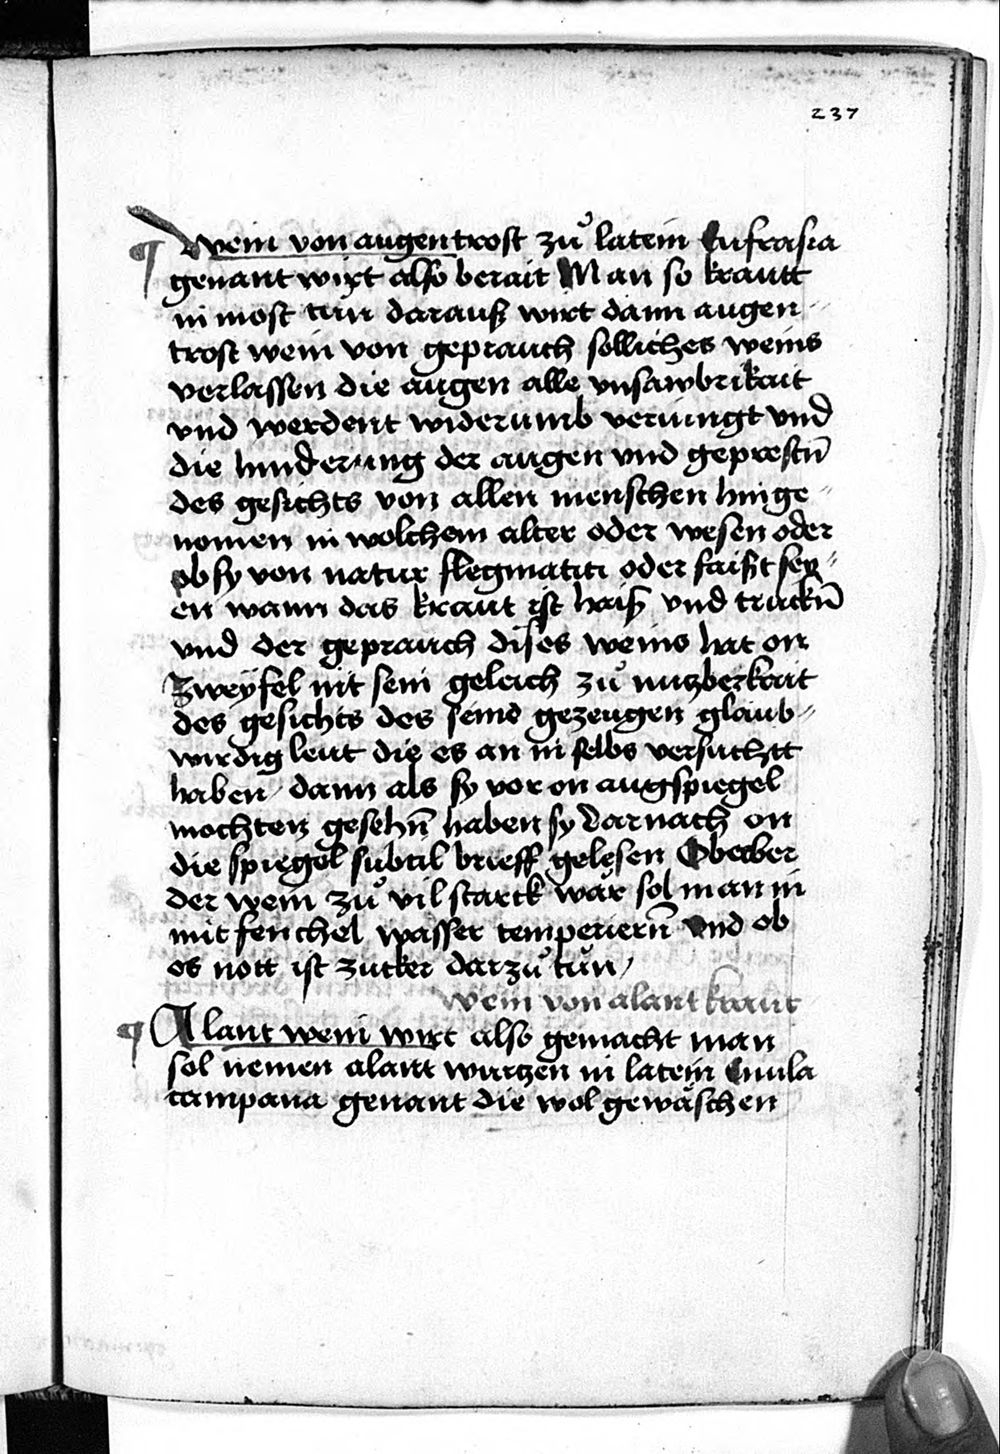 237
¶ Wein von augentrost zů latein Eufrasia
genant wirt also berait Man so krautt
in most tun darauß wirt dann augen〃
trost wein von geprauch solliches weins
verlassen die augen alle vnsawbrikait
vnd werdent widerumb veriungt vnd
die hinderung der augen vnd geprestn̄
des gesichts von allen menschen hinge〃
nomen in wolchem alter oder wesen oder
ob sy von natur flegmatici oder faißt sey〃
en wann das kraut ist haiß vnd truckn̄
vnd der geprauch dises weins hat on
Zweyfel nit sein geleich zů nutzberkait
des gesichts des seind gezeugen glaub〃
wirdig leut die es an in selbs versuchtt
haben / dann als sy vor on augspiegel
mochten gesehn̄ haben sy darnach on
die spiegel subtil brieff gelesen Ob aber
der wein zů vil starck wär sol man in
mit fenchel wasser temperiern̄ vnd ob
es nott ist zucker darzů tůn /
wein von alant kraut
¶ Alant wein wirt also gemacht man
sol nemen alantt wurtzen in latein Enula
campana genant die wol gewäschen